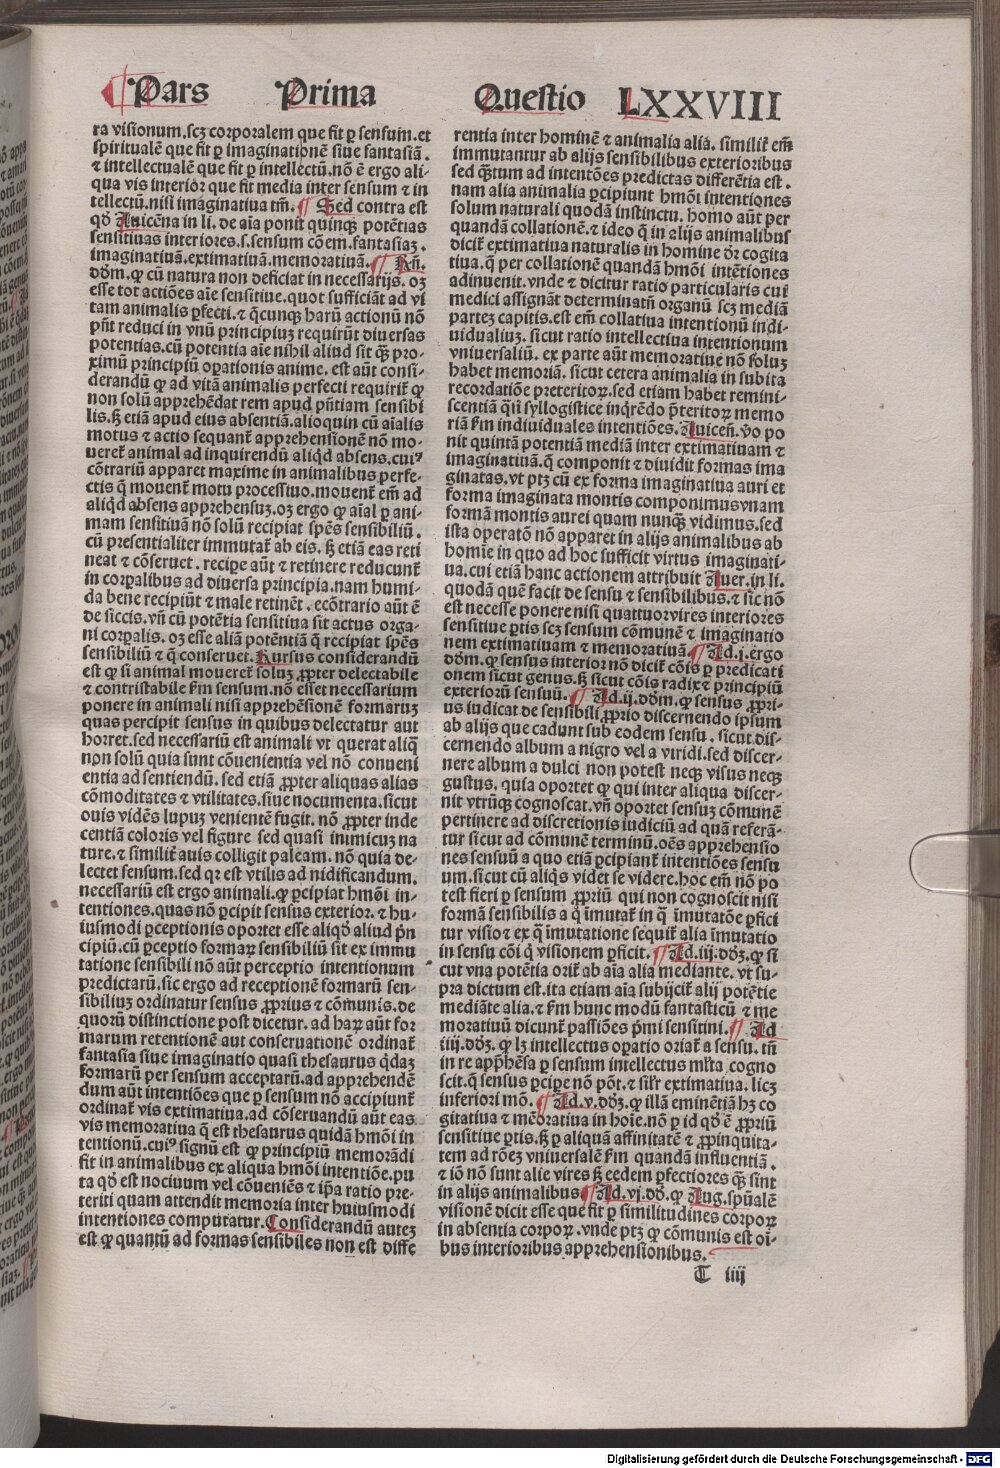 Pars Prima Questio LXXVIII
ra visionum.scꝫ corporalem que fit ꝑ sensum.et
spiritualē que fit ꝑ imaginationē siue fantasiā.
⁊ intellectualē que fit ꝑ intellectū.nō ē ergo ali-
qua vis interior que fit media inter sensum ⁊ in
tellectū.nisi imaginatiua tm̄. ¶ Sed contra est
qď Auicēna in li. de aīa ponit quinqꝫ potētias
sensitiuas interiores.s.sensum cōem.fantasiaꝫ.
imaginatiuā.extimatiuā.memoratiuā. ¶ Rn̄.
dōm.ꝙ cū natura non deficiat in necessarijs.oꝫ
esse tot actiōes aīe sensitiue.quot sufficiāt ad vi
tam animalis ꝑfecti.⁊ q̄cunqꝫ harū actionū nō
pn̄t reduci in vnū principiuꝫ requirūt diuersas
potentias.cū potentia aīe nihil aliud sit q̄ꝫ pro-
ximū principiū oꝑationis anime. est aūt consi-
derandū ꝙ ad vitā animalis perfecti requirit̄ ꝙ
non solū apprehēdat rem apud pn̄tiam sensibi
lis.sꝫ etiā apud eius absentiā.alioquin cū aīalis
motus ⁊ actio sequant̄ apprehensionē nō mo-
ueret̄ animal ad inquirendū aliqd absens.cuiꝰ
cōtrariū apparet maxime in animalibus perfe-
ctis q̄ mouent̄ motu processiuo.mouent̄ em̄ ad
aliqd absens apprehensuꝫ.oꝫ ergo ꝙ aīal ꝑ ani-
mam sensitiuā nō solū recipiat spēs sensibiliū.
cū presentialiter immutat̄ ab eis. sꝫ etiā eas reti
neat ⁊ cōseruet. recipe aūt ⁊ retinere reducunt̄
in corꝑalibus ad diuersa principia.nam humi-
da bene recipiūt ⁊ male retinēt. ecōtrario aūt ē
de siccis.vn̄ cū potētia sensitiua sit actus orga-
ni corꝑalis. oꝫ esse aliā potentiā q̄ recipiat spēs
sensibiliū ⁊ q̄ conseruet. Rursus considerandū
est ꝙ si animal moueret̄ soluꝫ ꝓpter delectabile
⁊ contristabile s̄m sensum.nō esset necessarium
ponere in animali nisi apprehēsionē formaruꝫ
quas percipit sensus in quibus delectatur aut
horret.sed necessariū est animali vt querat aliq̄
non solū quia sunt cōuenientia vel nō conueni
entia ad sentiendū. sed etiā ꝓpter aliquas alias
cōmoditates ⁊ vtilitates.siue nocumenta.sicut
ouis vidēs lupuꝫ venientē fugit. nō ꝓpter inde
centiā coloris vel figure sed quasi inimicuꝫ na
ture.⁊ similit̄ auis colligit paleam. nō quia de-
lectet sensum.sed qr est vtilis ad nidificandum.
necessariū est ergo animali.ꝙ ꝑcipiat hmōi in-
tentiones.quas nō ꝑcipit sensus exterior. ⁊ hu-
iusmodi ꝑceptionis oportet esse aliqď aliud pn̄
cipiū.cū ꝑceptio formaꝝ sensibiliū sit ex immu
tatione sensibili nō aūt perceptio intentionum
predictarū.sic ergo ad receptionē formarū sen-
sibiliuꝫ ordinatur sensus ꝓprius ⁊ cōmunis.de
quorū distinctione post dicetur. ad haꝝ aūt for
marum retentionē aut conseruationē ordinat̄
fantasia siue imaginatio quasi thesaurus q̄daꝫ
formarū per sensum acceptarū.ad apprehendē
dum aūt intentiōes que ꝑ sensum nō accipiunt̄
ordinat̄ vis extimatiua. ad cōseruandū aūt eas
vis memoratiua q̄ est thesaurus quidā hmōi in
tentionū.cuiꝰ signū est ꝙ principiū memorādi
fit in animalibus ex aliqua hmōi intentiōe.pu
ta qď est nociuum vel cōueniēs ⁊ ip̄a ratio pre-
teriti quam attendit memoria inter huiusmodi
intentiones computatur. Considerandū auteꝫ
est ꝙ quantū ad formas sensibiles non est diffe
rentia inter hominē ⁊ animalia alia. similit̄ em̄
immutantur ab alijs sensibilibus exterioribus
sed q̄ꝫtum ad intentōes predictas differētia est.
nam alia animalia ꝑcipiunt hmōi intentiones
solum naturali quodā instinctu. homo aūt per
quandā collationē.⁊ ideo q̄ in alijs animalibus
dicit̄ extimatiua naturalis in homine dr̄ cogita
tiua.q̄ per collationē quandā hmōi intētiones
adinuenit.vnde ⁊ dicitur ratio particularis cui
medici assignāt determinatū organū scꝫ mediā
parteꝫ capitis.est em̄ collatiua intentionū indi-
uidualiuꝫ. sicut ratio intellectiua intentionum
vniuersaliū. ex parte aūt memoratiue nō soluꝫ
habet memoriā. sicut cetera animalia in subita
recordatiōe preteritoꝝ.sed etiam habet remini-
scentiā q̄si syllogistice inq̄rēdo p̄teritoꝝ memo
riā s̄m indiuiduales intentiōes. Auiceñ. vō po
nit quintā potentiā mediā inter extimatiuam ⁊
imaginatiuā.q̄ componit ⁊ diuidit formas ima
ginatas.vt ptꝫ cū ex forma imaginatiua auri et
forma imaginata montis componimusvnam
formā montis aurei quam nunq̄ꝫ vidimus.sed
ista operatō nō apparet in alijs animalibus ab
homīe in quo ad hoc sufficit virtus imaginati-
ua.cui etiā hanc actionem attribuit Auer.in li.
quodā quē facit de sensu ⁊ sensibilibus.⁊ sic nō
est necesse ponere nisi quattuorvires interiores
sensitiue ꝑtis scꝫ sensum cōmunē ⁊ imaginatio
nem extimatiuam ⁊ memoratiuā. ¶ Ad.i.ergo
dōm.ꝙ sensus interior nō dicit̄ cōis ꝑ predicati
onem sicut genus.sꝫ sicut cōis radix ⁊ principiū
exteriorū sensuū. ¶ Ad.ij.dōm.ꝙ sensus ꝓpri-
us iudicat de sensibili ꝓprio discernendo ipsum
ab alijs que cadunt sub eodem sensu. sicut dis-
cernendo album a nigro vel a viridi.sed discer-
nere album a dulci non potest neqꝫ visus neqꝫ
gustus. quia oportet ꝙ qui inter aliqua discer-
nit vtrūqꝫ cognoscat.vn̄ oportet sensuꝫ cōmunē
pertinere ad discretionis iudiciū ad quā referā-
tur sicut ad cōmunē terminū.oēs apprehensio
nes sensuū a quo etiā ꝑcipiant̄ intentiōes sensu
um.sicut cū aliqꝫ videt se videre.hoc em̄ nō po
test fieri ꝑ sensum ꝓpriū qui non cognoscit nisi
formā sensibilis a q̄ īmutat̄ in q̄ īmutatōe ꝑfici
tur visio ⁊ ex q̄ īmutatione sequit̄ alia īmutatio
in sensu cōi q̄ visionem ꝑficit. ¶ Ad.iij.dōꝫ.ꝙ si
cut vna potētia orit̄ ab aīa alia mediante. vt su-
pra dictum est.ita etiam aīa subijcit̄ alij potētie
mediāte alia.⁊ s̄m hunc modū fantasticū ⁊ me
moratiuū dicunt̄ passiōes pmi sensitiui. ¶ Ad
iiij.dōꝫ. ꝙ lꝫ intellectus oꝑatio oriat̄ a sensu. tn̄
in re app̄hēsa ꝑ sensum intellectus ml̄ta cogno
scit.q̄ sensus ꝑcipe nō pōt.⁊ sil̄r extimatiua. licꝫ
inferiori mō. ¶ Ad.v.dōꝫ.ꝙ illā eminētiā hꝫ co
gitatiua ⁊ mēoratiua in hoīe.nō ꝑ id qď ē ꝓpriū
sensitiue ꝑtis.sꝫ ꝑ aliquā affinitatē ⁊ ꝓpinquita-
tem ad rōeꝫ vniuersalē s̄m quandā influentiā.
⁊ iō nō sunt alie vires sꝫ eedem ꝑfectiores q̄ꝫ sint
in alijs animalibus ¶ Ad.vj.dō.ꝙ Aug.spūalē
visionē dicit esse que fit ꝑ similitudines corpoꝝ
in absentia corpoꝝ.vnde ptꝫ ꝙ cōmunis est oī-
bus interioribus apprehensionibus.
T iiij
Digitalisierung gefördert durch die Deutsche Forschungsgemeinschaft - DFG